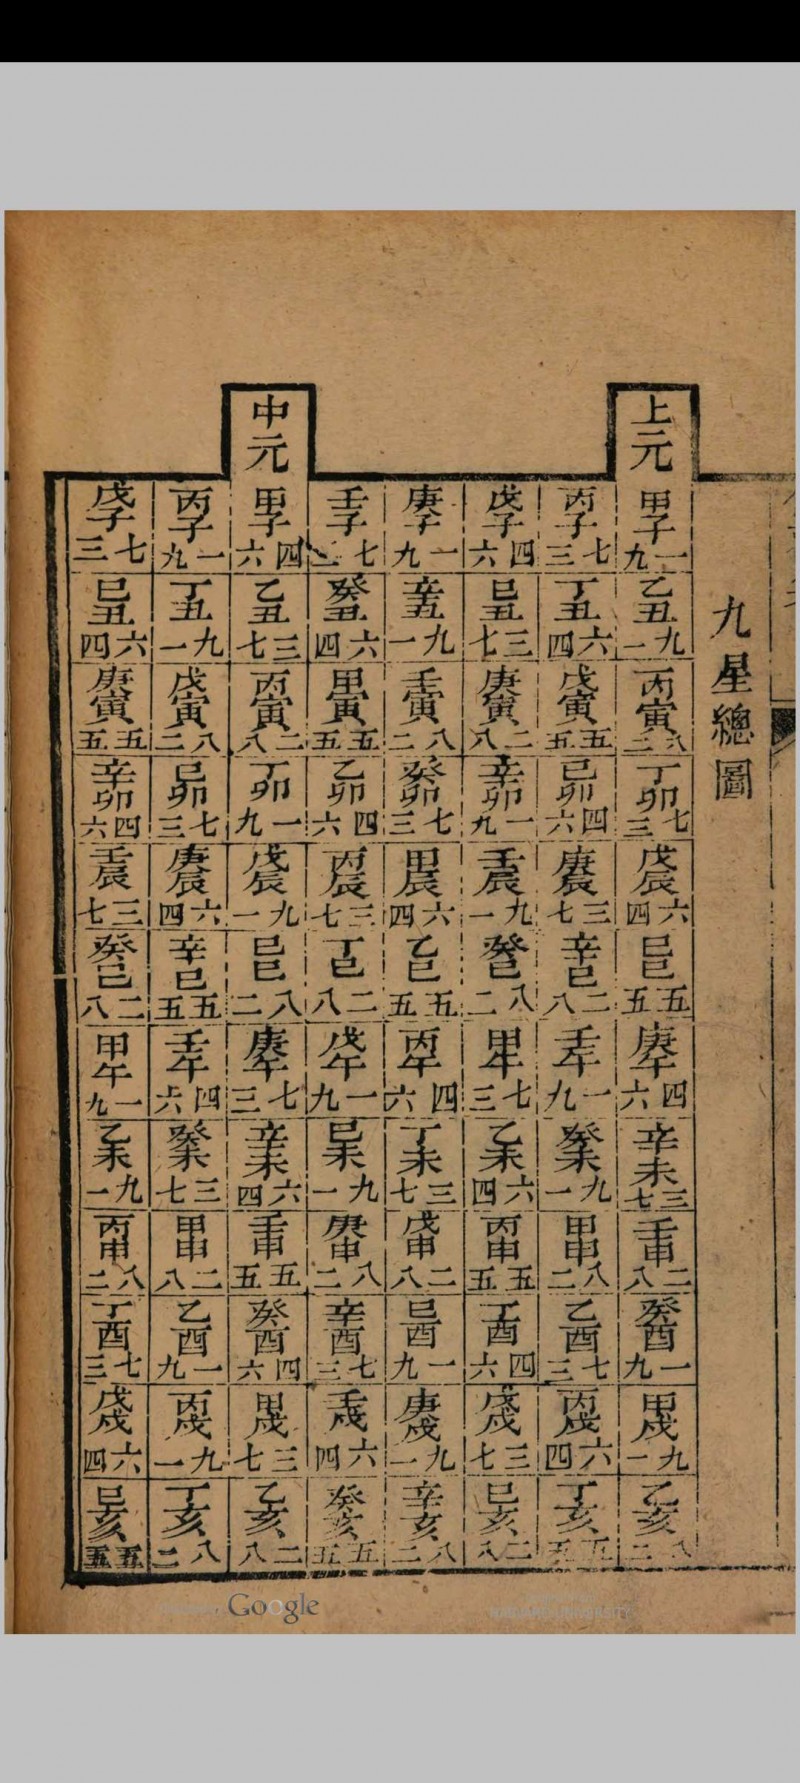 九星總圖
上元
甲子一九乙丑九一丙寅八二丁卯七三戊辰六四己巳五五庚午四六辛未三七壬申二八癸酉一九甲戌九一乙亥八二
丙子七三丁丑六四戊寅五五己卯四六庚辰三七辛巳二八壬午一九癸未九一甲申八二乙酉七三丙戌六四丁亥五五
戊子四六己丑三七庚寅二八辛卯一九壬辰九一癸巳八二甲午七三乙未六四丙申五五丁酉四六戊戌三七己亥二八
庚子一九辛丑九一壬寅八二癸卯七三甲辰六四乙巳五五丙午四六丁未三七戊申二八己酉一九庚戌九一辛亥八二
壬子七癸丑六四甲寅五五乙卯四六丙辰三七丁巳二八戊午一九己未九一庚申八二辛酉七三壬戌六四癸亥五五
中元
甲子四六乙丑三七丙寅二八丁卯一九戊辰九一己巳八二庚午七三辛未六四壬申五五癸酉四六甲戌三七乙亥二八
丙子一九丁丑九一戊寅八二己卯七三庚辰六四辛巳五五壬午四六癸未三七甲申二八乙酉一九丙戌九一丁亥八二
戊子七三己丑六四庚寅五五辛卯四六壬辰三七癸巳二八甲午一九乙未九一丙申八二丁酉七三戊戌六四己亥五五
Google
HARVARD UNIVERSITY